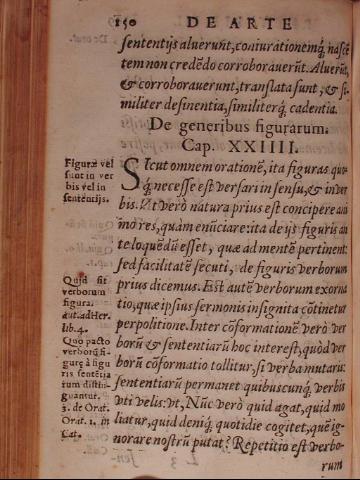 150 DE ARTE
sententijs aluerũt, coniurationemq́; nascẽ
tem non credẽdo corroborauerũt. Aluerũt,
& corroborauerunt, translata sunt, & si-
militer desinentia, similiterq́; cadentia.
De generibus figurarum.
Cap. XXIIII.
Figuræ vel
sunt in ver
bis vel in
sententijs.
Sicut omnem orationẽ, ita figuras quo-
q́; necesse est versari in sensu, & in ver
bis. Vt verò natura prius est concipere ani
mo res, quàm enũctiare: ita de ijs figuris an
te loquẽdũ esset, quæ ad mentẽ pertinent:
sed facilitatẽ secuti, de figuris verborum
prius dicemus. Est autẽ verborum exorna
tio, quæ ipsius sermonis insignita cõtinetur
perpolitione. Inter cõformationẽ verò ver
borũ & sententiarũ hoc interest, quòd ver
borũ cõformatio tollitur, si verba mutaris:
sententiarũ permanet quibuscunq́; verbis
vti velis: vt, Nũc verò quid agat, quid mo
liatur, quid deniq́; quotidie cogitet, quẽ ig-
norare nostrũ putat? Repetitio est verbo-
rum
Quid sit
verborum
figura.
aut. ad Her.
lib. 4.
Quo pacto
verborũ fi-
guræ à figu
ris sentẽtia
rum distin-
guantur.
3. de Orat.
Orat. 1. in
Cat.